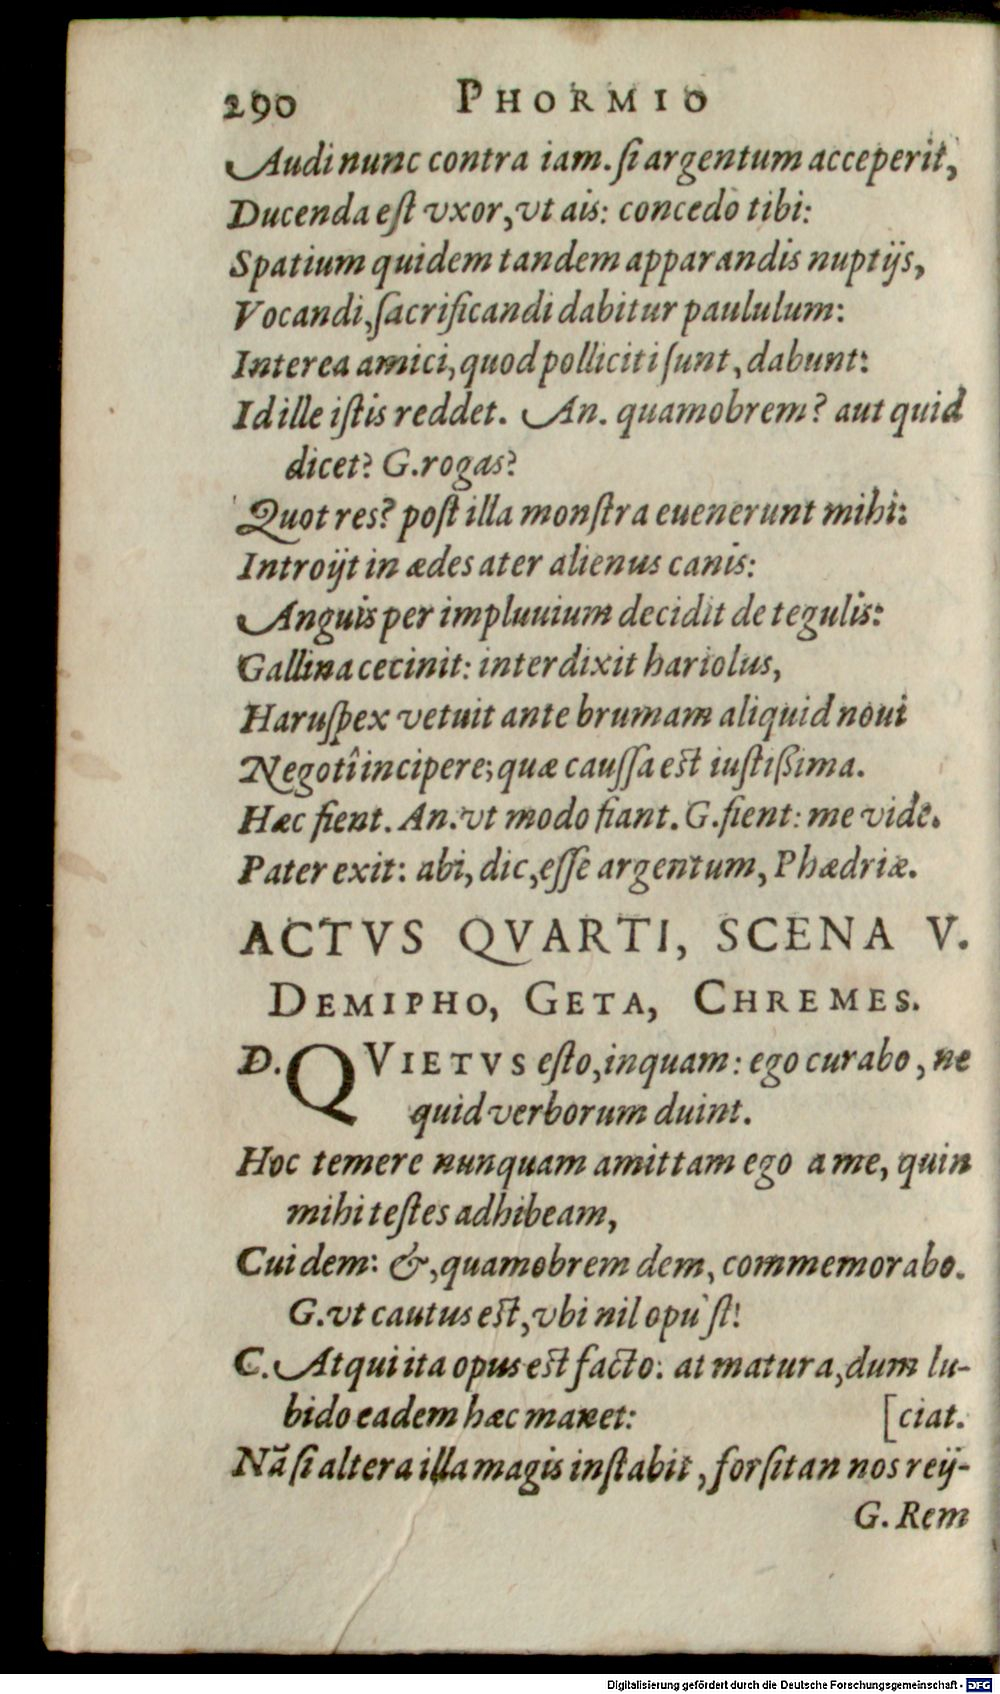 290 PHORMIO
Audi nunc contra iam. ſi argentum acceperit,
Ducenda eſt vxor, vt ais: concedo tibi:
Spatium quidem tandem apparandis nuptijs,
Vocandi, ſacrificandi dabitur paululum:
Interea amici, quod polliciti ſunt, dabunt:
Id ille iſtis reddet. An. quamobrem? aut quid
dicet? G. rogas?
Quot res? poſt illa monſtra euenerunt mihi:
Introijt in ædes ater alienus canis:
Anguis per impluuium decidit de tegulis:
Gallina cecinit: interdixit hariolus,
Haruſpex vetuit ante brumam aliquid noui
Negotî incipere; quæ cauſſa eſt iuſtißima.
Hæc fient. An. vt modo fiant. G. fient: me vide.
Pater exit: abi, dic, eſſe argentum, Phædriæ.
ACTVS QVARTI, SCENA V.
DEMIPHO, GETA, CHREMES.
D. QVIETVS eſto, inquam: ego curabo, ne
quid verborum duint.
Hoc temere nunquam amittam ego a me, quin
mihi teſtes adhibeam,
Cui dem: &, quamobrem dem, commemorabo.
G. vt cautus eſt, vbi nil opu' ſt!
C. Atqui ita opus eſt facto: at matura, dum lu-
bido eadem hæc manet: [ciat.
Nã ſi altera illa magis inſtabit, forſitan nos reij-
G. Rem
Digitalisierung gefördert durch die Deutsche Forschungsgemeinschaft - DFG